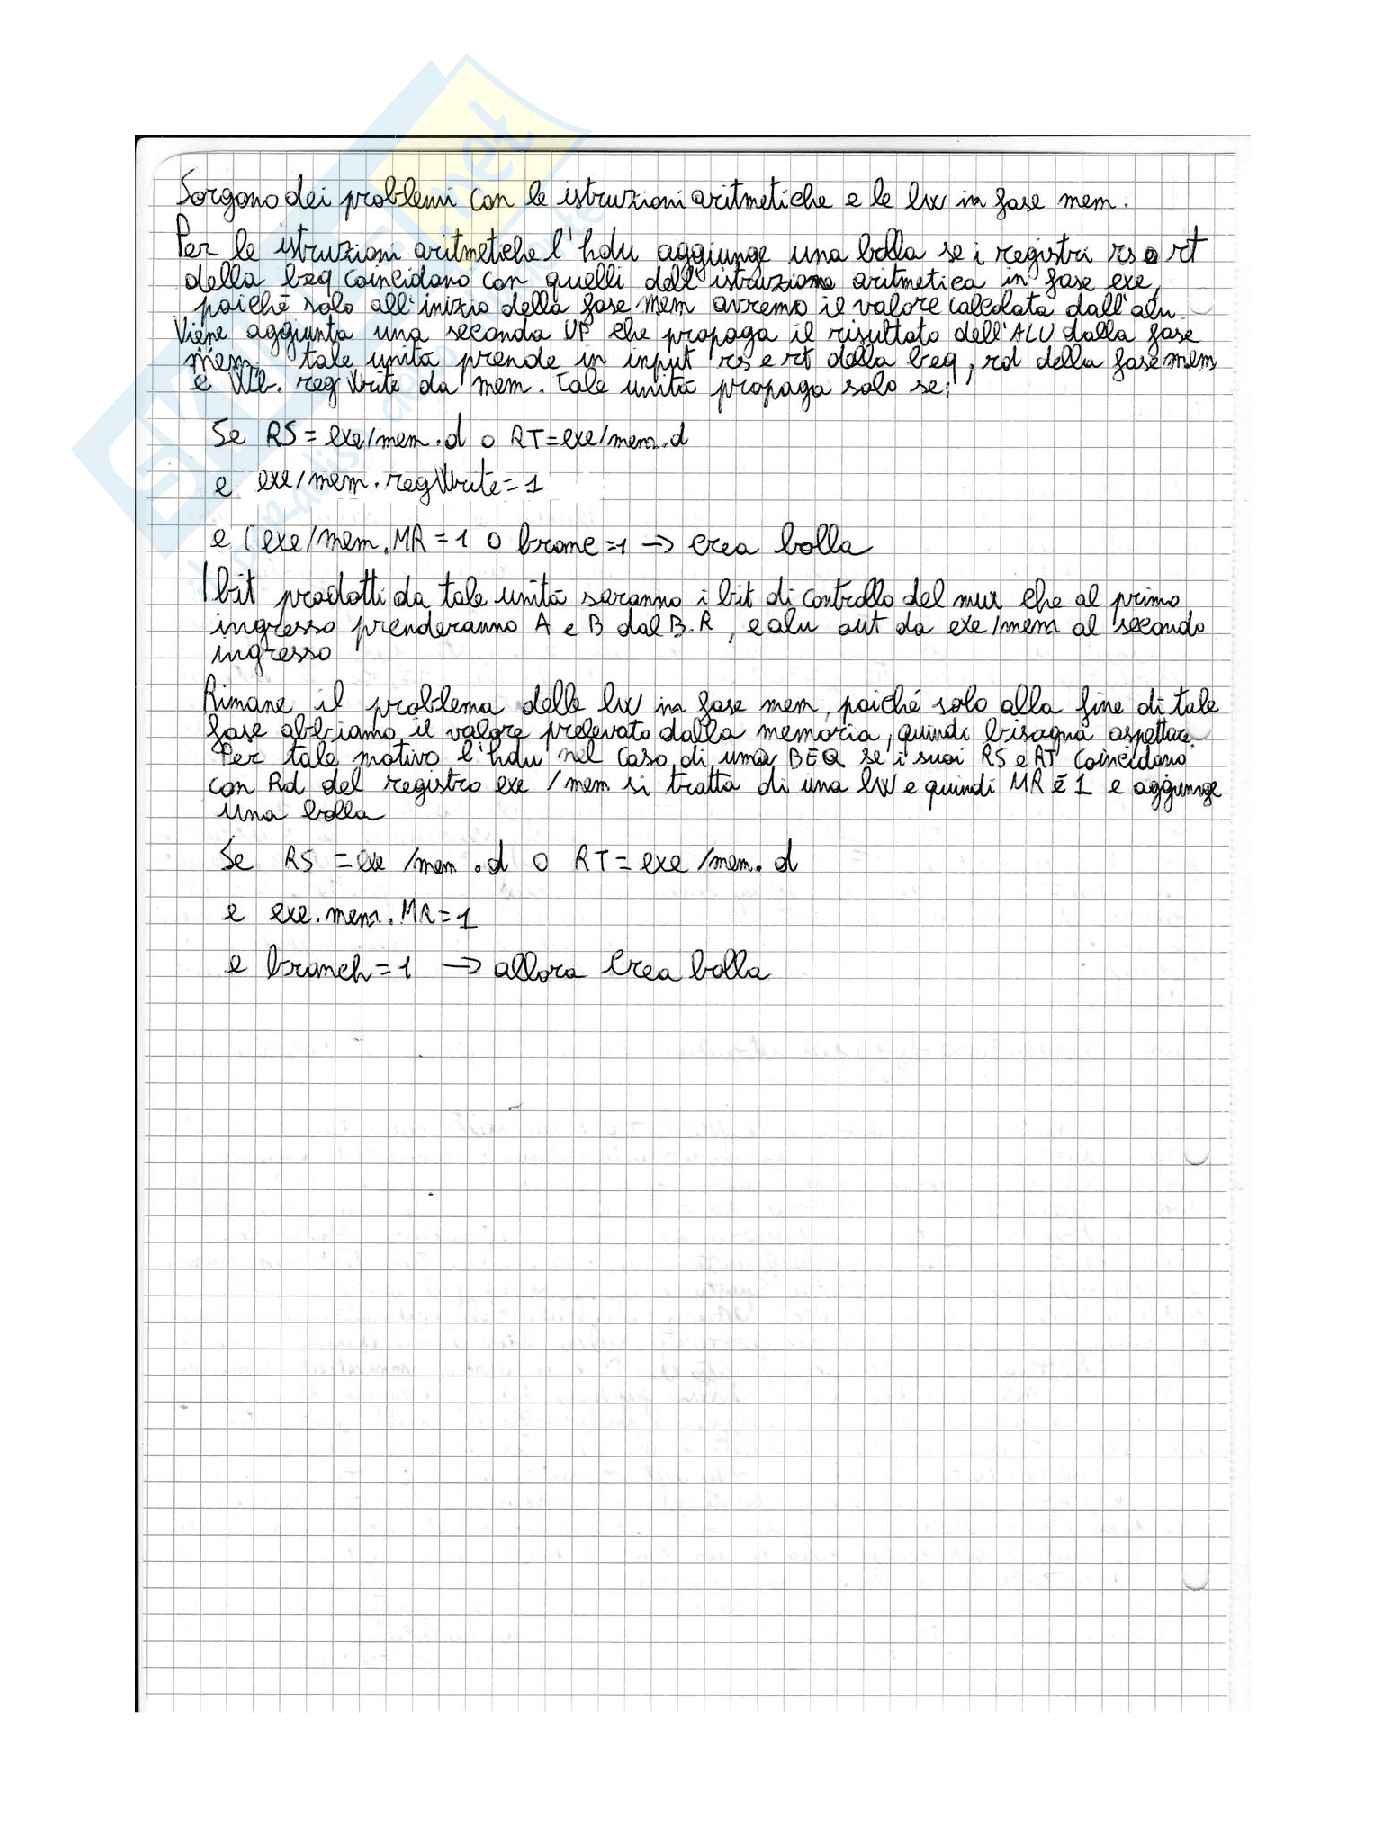 Sorgono dei problemi con le istruzioni aritmetiche e le lw in fase mem.
Per le istruzioni aritmetiche l'hdu aggiunge una bolla se i registri rs o rt
della beq coincidano con quelli dell'istruzione aritmetica in fase exe,
poiché solo all'inizio della fase mem avremo il valore calcolata dall'alu.
Viene aggiunta una seconda UP che propaga il risultato dell'ALU dalla fase
mem, tale unità prende in input rs e rt della beq, rd della fase mem
e Wb. regWrite da mem. tale unità propaga solo se:
Se RS = exe/mem.d o RT=exe/mem.d
e exe/mem.regWrite=1
e (exe/mem.MR=1 o brome=1 → crea bolla
I bit prodotti da tale unità saranno i bit di controllo del mux che al primo
ingresso prenderanno A e B dal B.R, e alu out da exe/mem al secondo
ingresso
Rimane il problema delle lw in fase mem, poiché solo alla fine di tale
fase abbiamo il valore prelevato dalla memoria, quindi bisogna aspettare.
Per tale motivo l'hdu nel caso di uma BEQ se i suoi RS e RT coincidano
con Rd del registro exe/mem si tratta di una lw e quindi MR è 1 e aggiunge
una bolla
Se RS = exe/mem.d o RT= exe/mem.d
e exe.mem.MR=1
e branch=1 → allora crea bolla